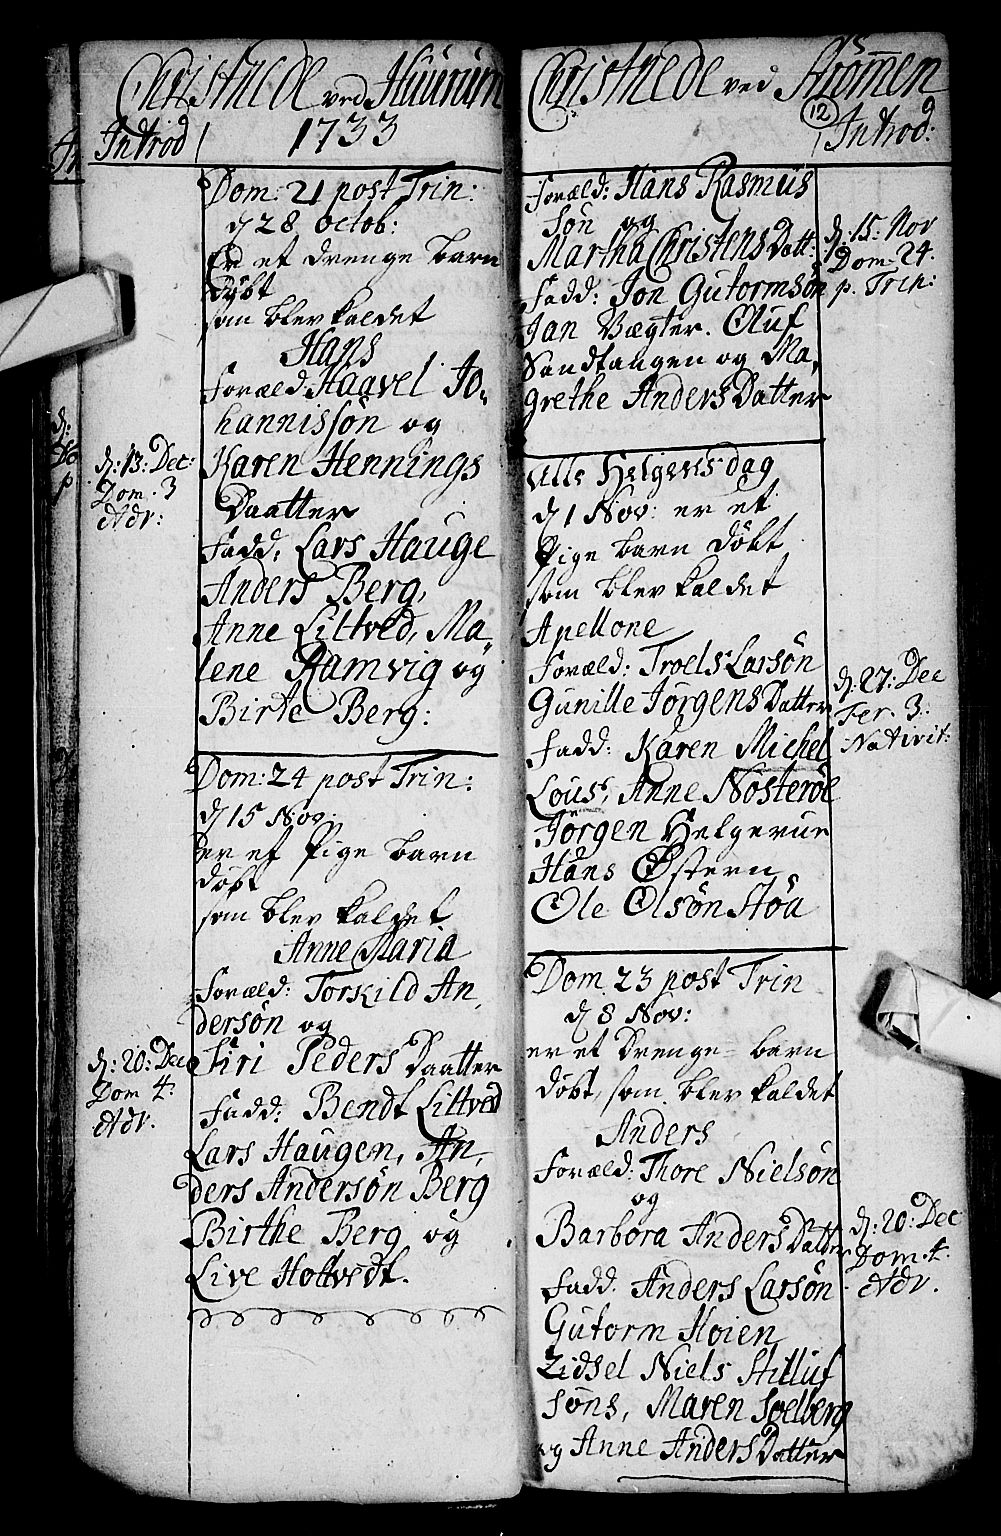 Christnede ved Huurum
Introd
1733
Dom: 21 post Trin:
d 28 Octob:
Er et Drenge barn
döbt
som blev kaldet
Hans
Foræld: Haavel Jo-
hannissön og
Karen Hennings
Daatter
Fadd, Lars Hauge
Anders Berg,
Anne Littved, Ma-
lene Ramvig og
Birte Berg:
d: 13: Dec:
Dom. 3
Adv:
Dom: 24 post Trin:
d 15 Nov:
er et Pige barn
döbt
som blev kaldet
Anne Maria
Foræld: Torkild An-
dersön og
Siri Peders Daatter
Fadd: Bendt Littved
Lars Haugen, An-
ders Andersön Berg
Birthe Berg og
Live Holtvedt.
d: 20: Dec
Dom 4:
Adv.
Christnede ved Strömen
12
Introd:
Foræld: Hans Rasmus
Sön og
Martha Christens Datt:
Fadd: Jon Gutormsön
Jan Vægter. Oluf
Sandtangen og Ma-
grethe Anders Datter
d: 15: Nov
Dom. 24.
p. Trin:
Alle Helgens dag
d 1 Nov: er et
Pige barn döbt
som blev kaldet
Apellone
Foræld: Troels Larsön
Gunille Jörgens Datter
Fadd: Karen Michel
Lous, Anne Nosteröe
Jörgen Helgerue
Hans Østern
Ole Olsön Stöa
d: 27: Dec
Fer. 3:
Nativit:
Dom 23 post Trin
d 8 Nov:
er et Drenge barn
döbt, som blev kaldet
Anders
Foræld: Thore Nielsön
og
Barbora Anders Datter
Fadd. Anders Larsön
Gutorm Höien
Zidsel Niels Stilluf
söns, Maren Soelberg
og Anne Anders Datter
d: 20: Dec
Dom. 4:
Adv.